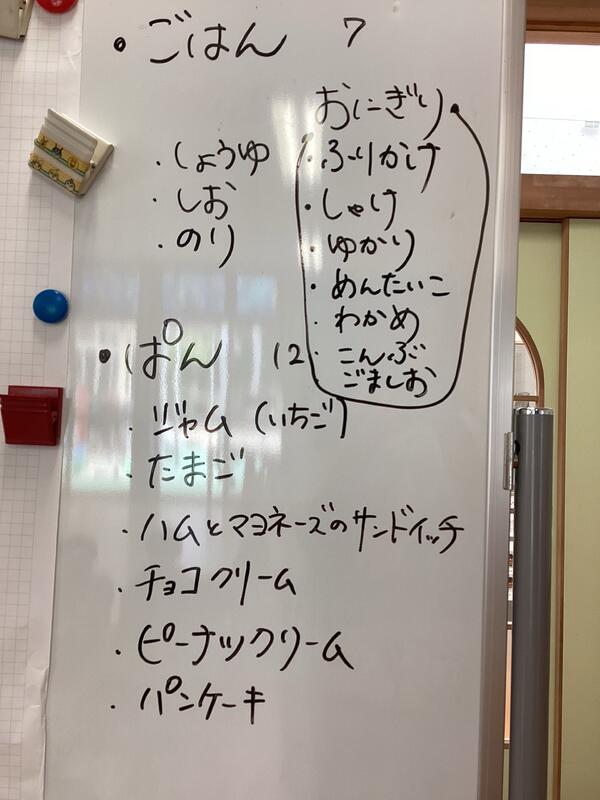 ・ごはん 7
・しょうゆ
・しお
・のり
おにぎり
・ふりかけ
・しゃけ
・ゆかり
・めんたいこ
・わかめ
・こんぶ
ごましお
・ぱん 12
・ジャム (いちご)
・たまご
・ハムとマヨネーズのサンドイッチ
・チョコクリーム
・ピーナックリーム
・パンケーキ